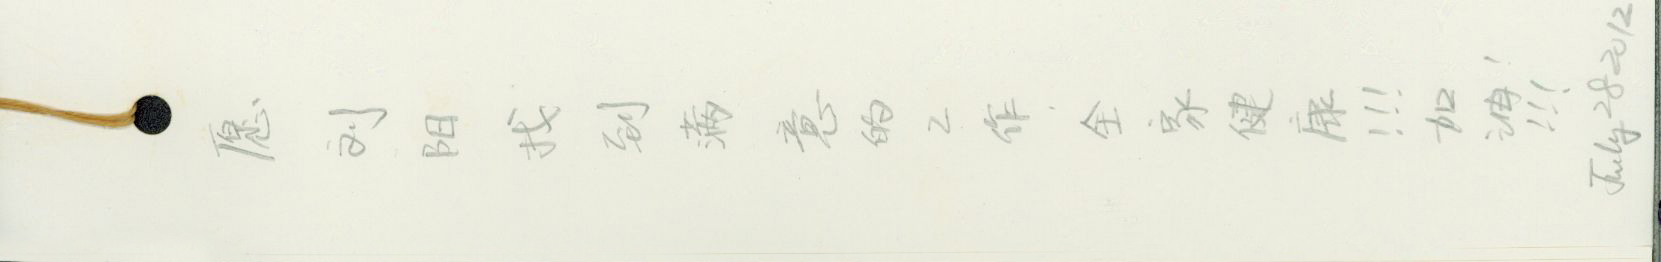 愿刘阳找到满意的工作全家健康!!!加油!!!!
July 28 2012